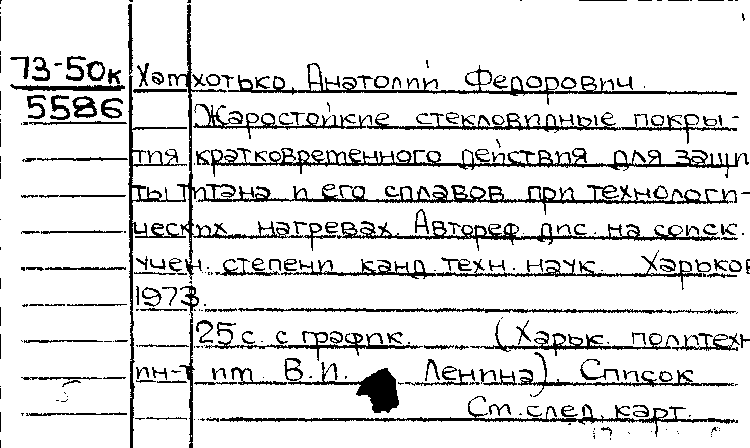 73-50к Хатхотько, Анатолий Федорович.
5586 Жаростойкие стекловидные покры-
тия кратковременного действия для защи
ты титана и его сплавов при технологи-
ческих нагревах. Автореф. дис. на соиск.
учен. степени канд. техн. наук. Харьков
1973.
25 с. с график. (Харьк. политехн
ин-т им В.И. Ленина). Список
См. след. карт.